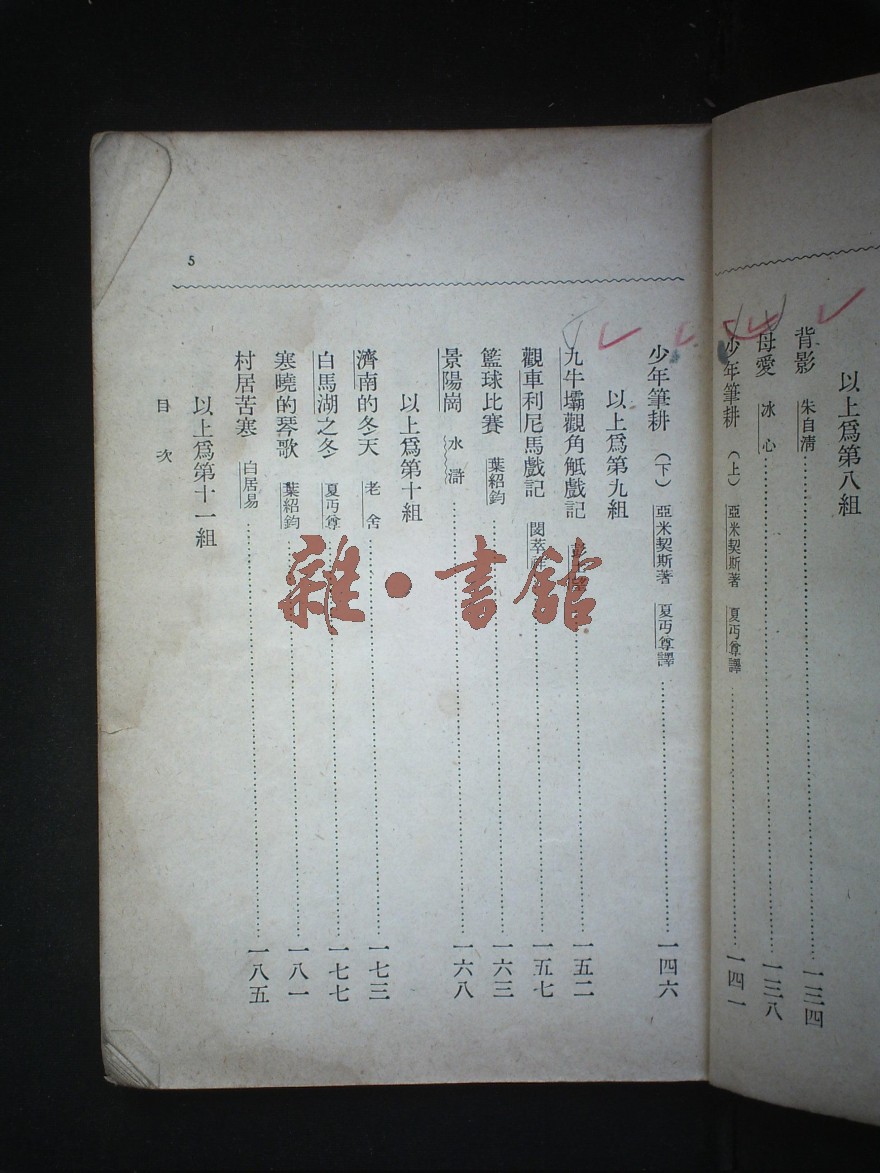 以上爲第八組
背影 朱自淸 一三四
母愛 冰心 一三八
少年筆耕(上) 亞米契斯著 夏丏尊譯 一四一
少年筆耕(下) 亞米契斯著 夏丏尊譯 一四六
以上爲第九組
九牛壩觀角觝戲記 一五二
觀車利尼馬戲記 閔萃祥 一五七
籃球比賽 葉紹鈞 一六三
景陽崗 水滸 一六八
以上爲第十組
濟南的冬天 老舍 一七三
白馬湖之冬 夏丏尊 一七七
寒曉的琴歌 葉紹鈞 一八一
村居苦寒 白居易 一八五
以上爲第十一組
目次
5
雜·書館